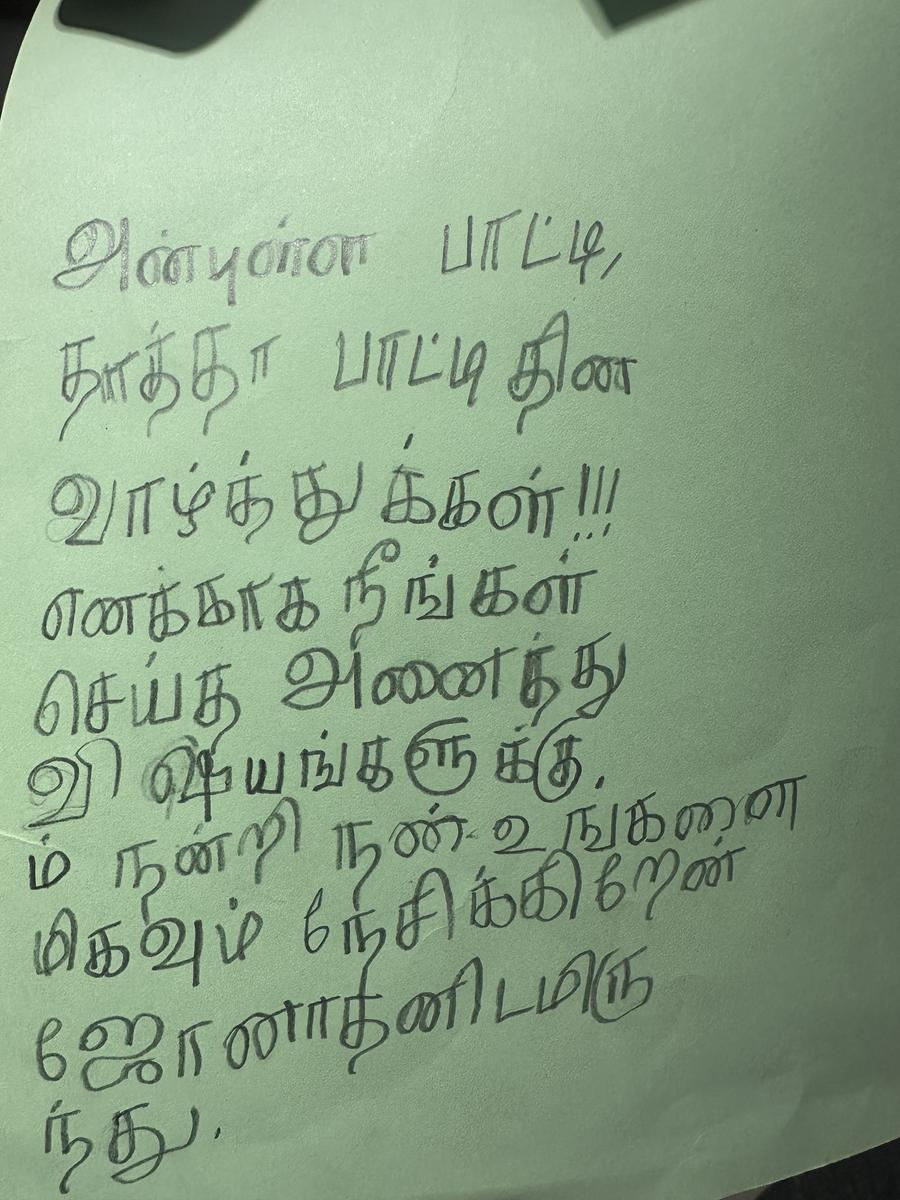 அன்புள்ள பாட்டி,
தாத்தா பாட்டி தின
வாழ்த்துக்கள்!!!
எனக்காக நீங்கள்
செய்த அனைத்து
விஷயங்களுக்கு.
ம் நன்றி நண் உங்களை
மிகவும் நேசிக்கிறேன்
ஜோனாதனிடமிரு
ந்து.